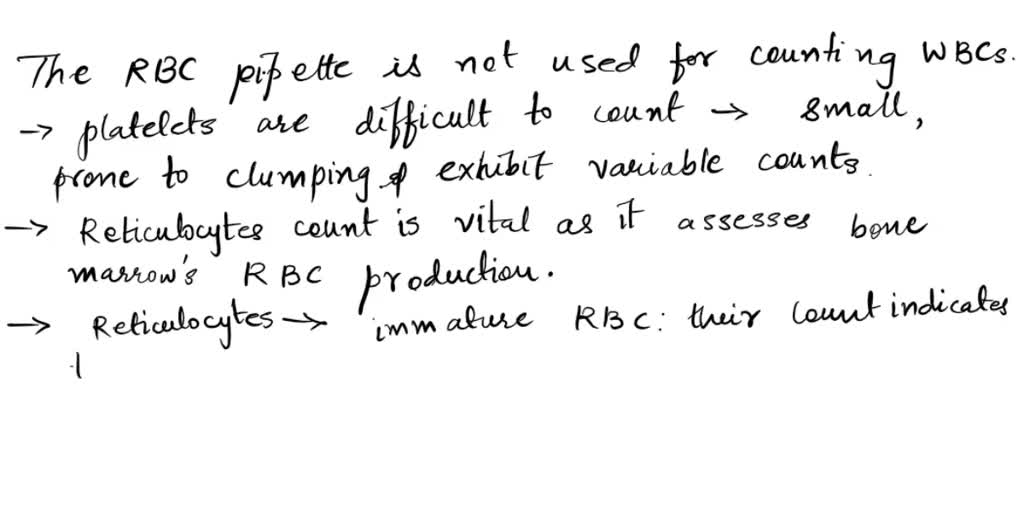 The RBC pipette is not used for counting WBCs.
→ platelets are difficult to count → small,
prone to clumping & exhibit variable counts.
→ Reticulocytes count is vital as it assesses bone
marrow's RBC production.
→ Reticulocytes → immature RBC: their count indicates